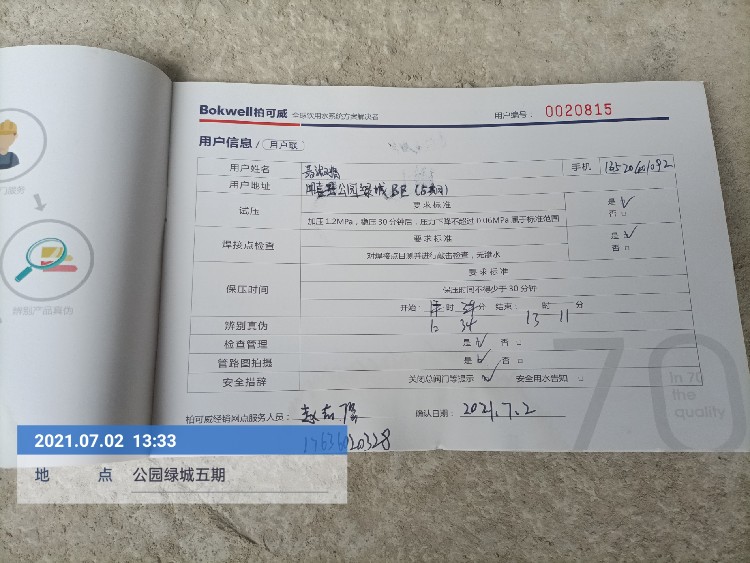 Bokwell柏可威 全屋饮用水系统方案解决者 用户编号： 0020815
用户信息 / 用户联
用户姓名 手机
用户地址 公园绿城
试压 要求标准 是 否
加压1.2MPa，稳压30分钟后，压力下降不超过0.06MPa属于标准范围
焊接点检查 要求标准 是 否
对焊接点目测并进行敲击检查，无渗水
保压时间 要求标准
保压时间不得少于30分钟
开始： 时 分 结束： 时 分
12 34 13 11
辨别真伪
检查管理 是 否
管路图拍摄 是 否
安全措辞 关闭总阀门等提示 安全用水告知
柏可威经销网点服务人员： 确认日期： 2021.7.2
辨别产品真伪
70
in 70
the
quality
2021.07.02 13:33
地 点 公园绿城五期